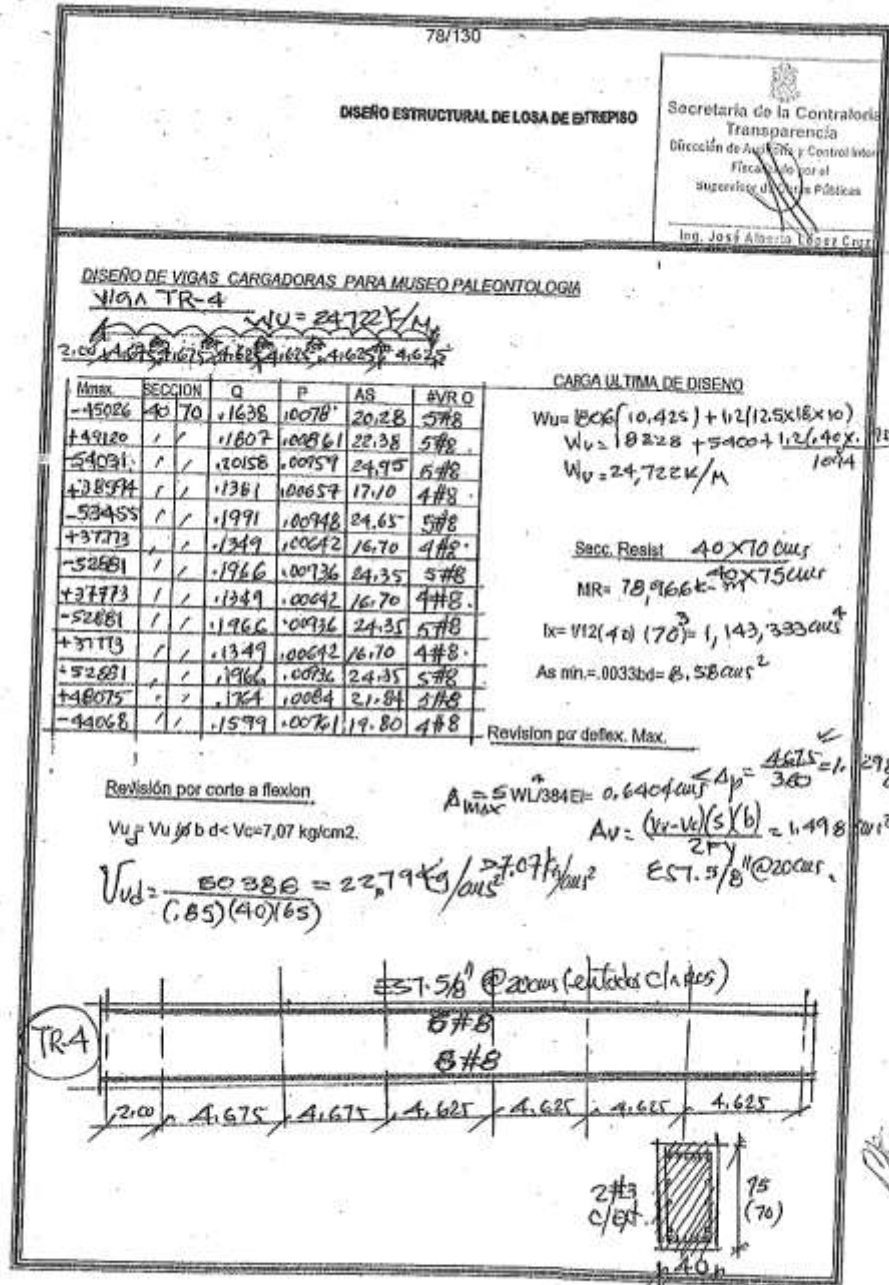 78/130
DISEÑO ESTRUCTURAL DE LOSA DE ENTREPISO
Secretaria de la Contraloria
Transparencia
Dirección de Auditoria y Control Inter
Fiscalizado por el
Supervisor de Obras Públicas
Ing. José Alberto López Cruz
DISEÑO DE VIGAS CARGADORAS PARA MUSEO PALEONTOLOGIA
VIGA TR-4
WU = 24722 K/M
2.00 4.675 4.675 4.625 4.625 4.625 4.625
Mmax. SECCION Q P AS #VR O
-45026 40 70 .1638 .0078 20.28 5#8
+49120 ′ ′ .1807 .00861 22.38 5#8
-54031 ′ ′ .20158 .00959 24.95 5#8
+38594 ′ ′ .1381 .00657 17.10 4#8
-53455 ′ ′ .1991 .00948 24.65 5#8
+37773 ′ ′ .1349 .00642 16.70 4#8
-52881 ′ ′ .1966 .00936 24.35 5#8
+37773 ′ ′ .1349 .00642 16.70 4#8
-52881 ′ ′ .1966 .00936 24.35 5#8
+37773 ′ ′ .1349 .00642 16.70 4#8
-52881 ′ ′ .1966 .00936 24.35 5#8
+48075 ′ ′ .1764 .0084 21.84 5#8
-44068 ′ ′ .1599 .00761 19.80 4#8
CARGA ULTIMA DE DISENO
Wu= 1806(10.425) + 1.2(12.5x18x10)
Wu= 18828 + 5400 + 1.2(.40x.
1094
Wu = 24,722 K/M
Secc. Resist 40 X 70 cms
40 X 75 cms
MR= 78,966 K-M
Ix= 1/12(40) (70)³= 1,143,333 cms⁴
As min.=.0033bd= 8.58 cms²
Revision por deflex. Max.
Δmax = 5 WL⁴/384EI= 0.6404 cms < Δp = 4.675/360 = 1.298
Revisión por corte a flexion
Vud= Vu /ø b d< Vc=7,07 kg/cm2.
Av = (Vu-Vc)(s)(b)/2Fy = 1.498 cms²
Vud = 50386/(.85)(40)(65) = 22.79 Kg/cms² >7.07 K/cms²
EST. 5/8" @20cms.
EST. 5/8" @ 20cms (en todos claros)
TR-4
6#8
6#8
2.00 4.675 4.675 4.625 4.625 4.625 4.625
2#3
C/Ext.
75
(70)
40